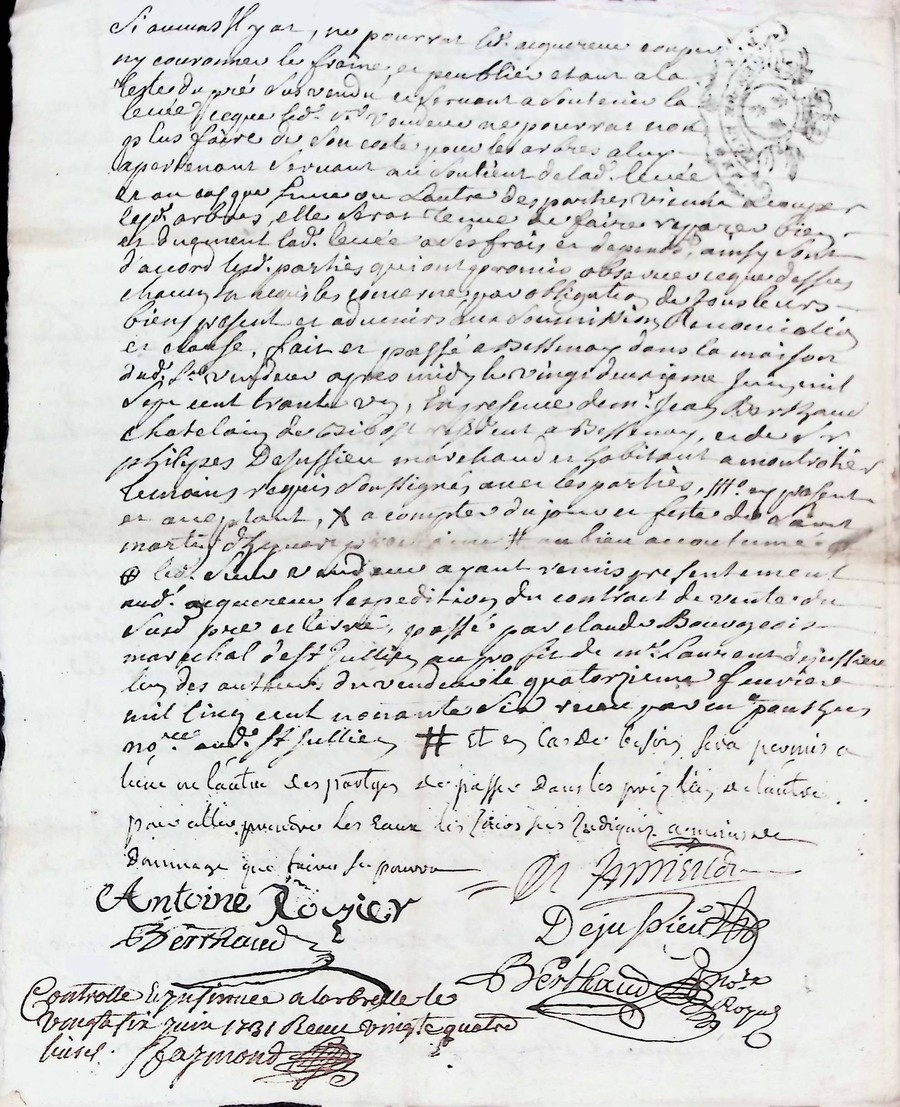 Si aucuns Il y at, ne pourrat led. acquereur couper
ny couronner le fraine, et peuplier etant a la
teste du pré Sus vendu et servant a Soutenir la
levée, ceque led. Sr. vendeur ne pourrat non
plus faire de Son costé pour les arbres a luy
apartenant Servant au Soutient de lad. levée
et au cas que L'une ou L'autre des parties vienne a couper
lesd. arbres, elle Serat tenue de faire reparer bien
et duement lad. levée a ses frais et depens, ainsy Sont
d'accord lesd. parties qui ont promis observer ceque dessus
chacun en ce qui les concerne par obligation de tous leurs
biens present et advenirs aux Soumission, Renonciation
et clause, fait et passé a Bessenay dans la maison
dud. Sr. vendeur apres midy le vingt deuxieme Juin mil
Sept cent trante un, En presence de mr. Jean Berthaud
chatelain de Bibost resident a Bessenay, et de Sr
philypes Dejussieu marchand et habitant a montrotier
temoins requis Soussignés avec les parties, ///. cy present
et acceptant, X a compter du jour et feste de Saint
martin d'hyver prochaine # au bien accoutumé
⊕ led. Sieur vendeur ayant remis presentement
aud. acquereur l'expedition du contract de vente du
Susd. pré et levée, passé par claude Bourgeois
marechal de St. Jullien au profit de mr. Laurent dejussieu
l'un des autheurs du vendeur le quatorzieme fevrier
mil cinq cent nonante Six receu par me.
no.re aud. St. Jullien # Et en Cas de besoin Sera permis a
lune ou l'autre des partyes de passer dans les de l'autre
pour aller prendre Les Eaux a moins de
dommage que faire Se pourra
Antoine Rozier
Berthaud
Dejussieu
Berthaud
Controllé a larbresle le
Vingt six juin 1731 Receu vingt quatre
livres. Raymond